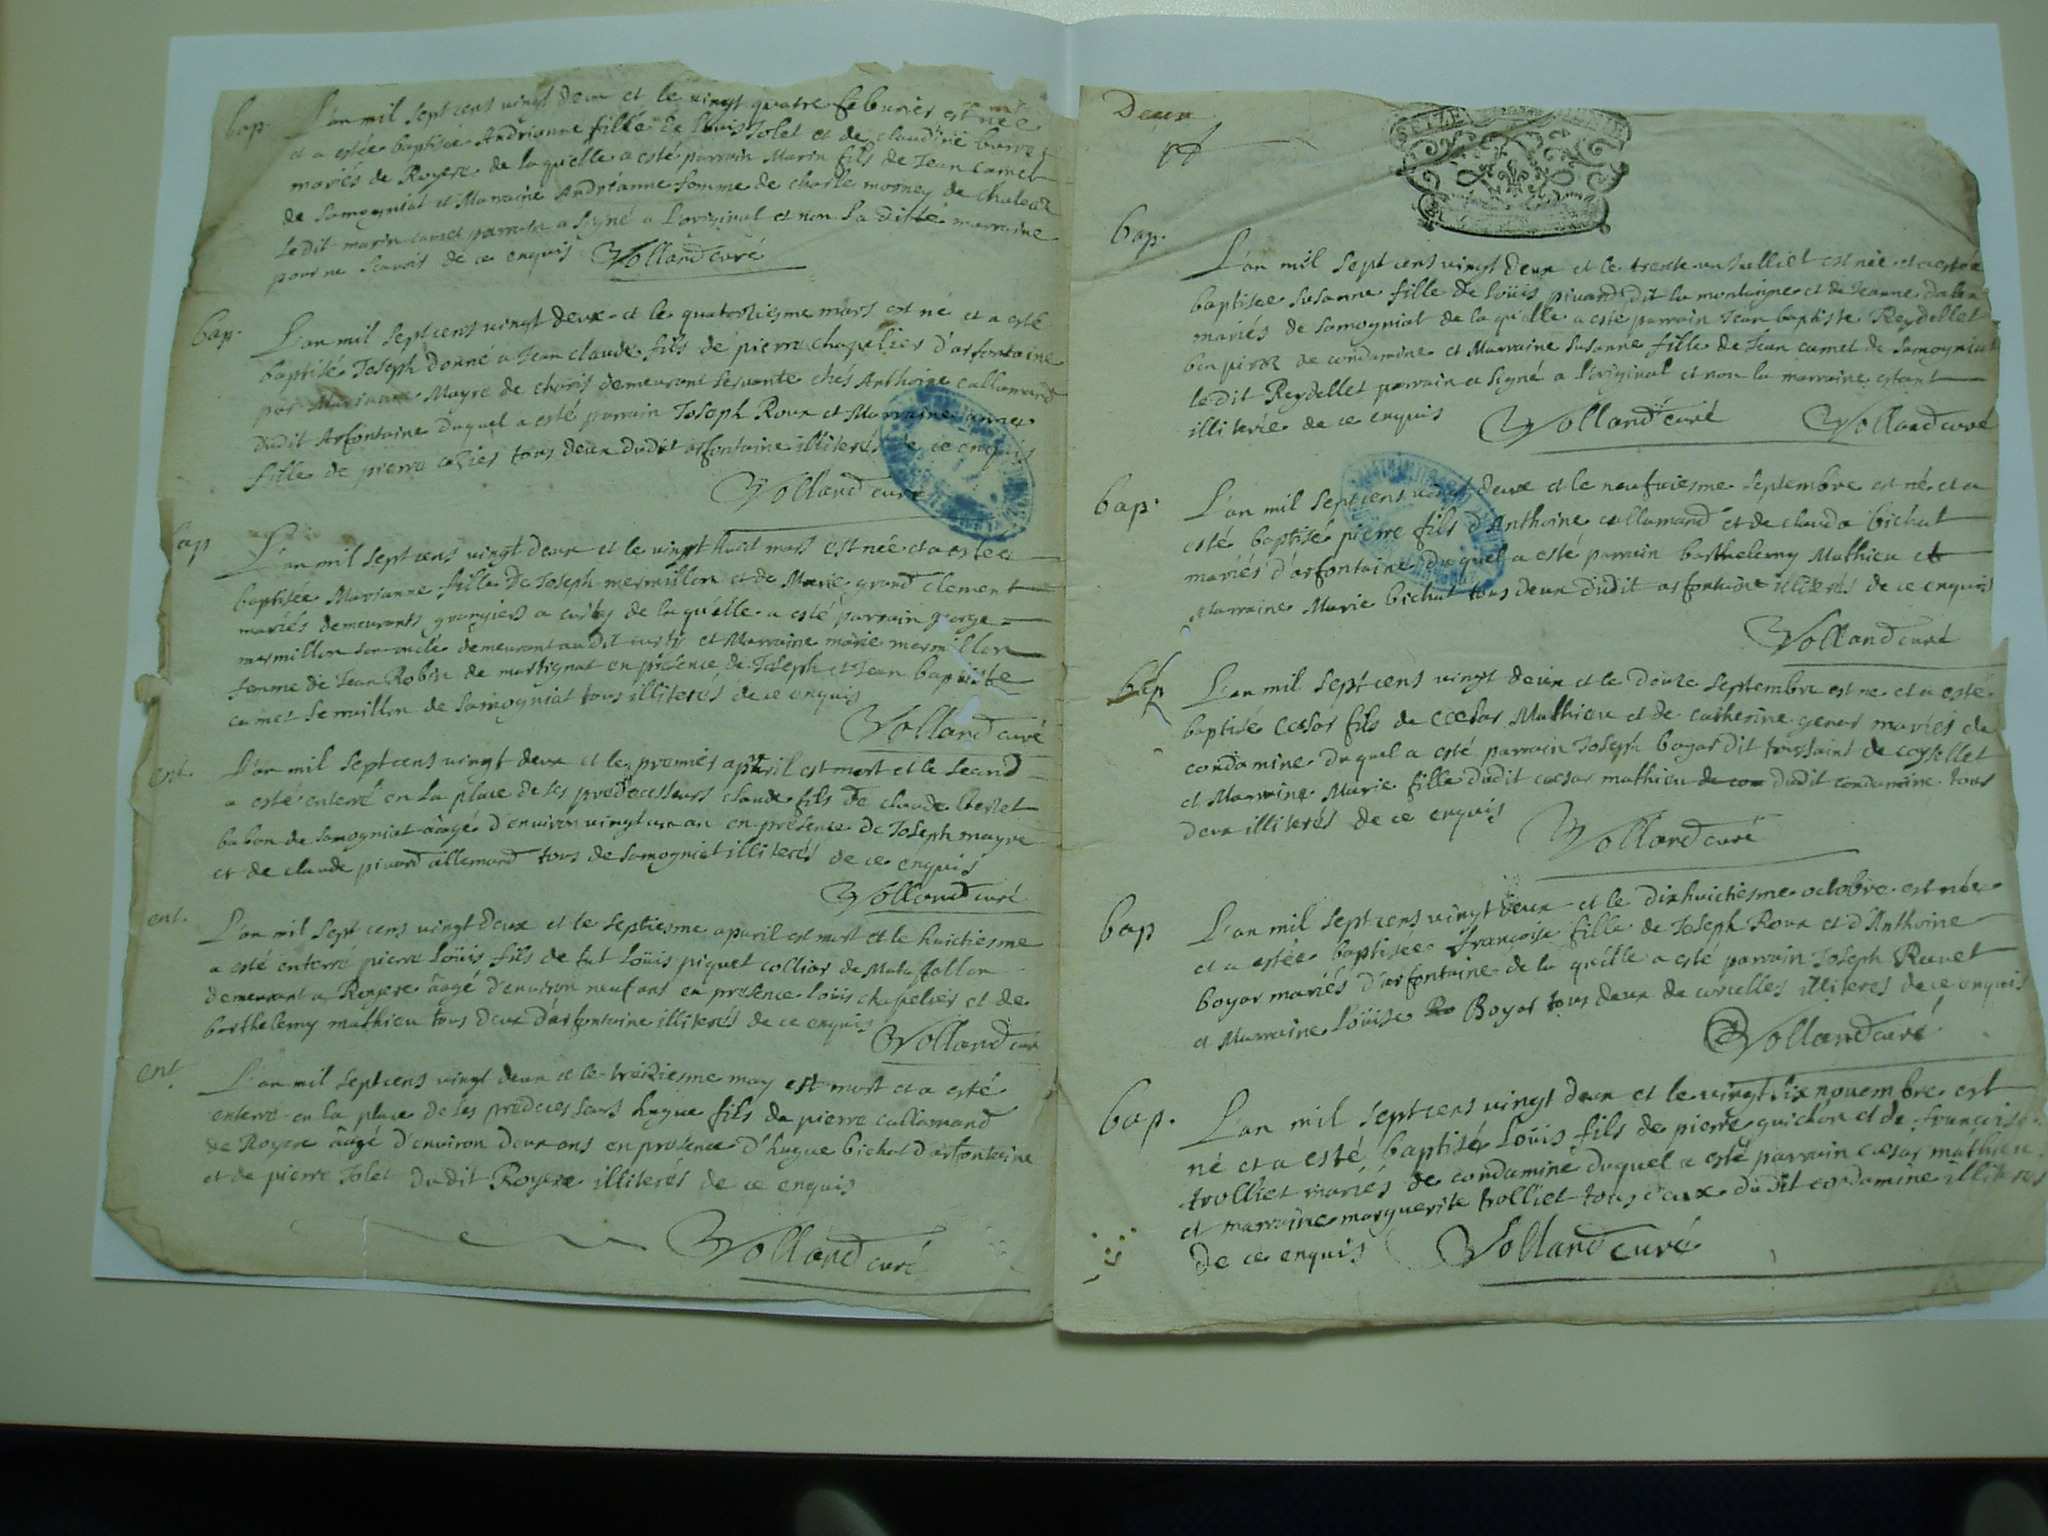 bap. L'an mil sept cens vingt deux et le vingt quatre feburier est née
et a estée baptisée Andrianne fille de Loüis Jolet et de claudine
mariés de Royere de laquelle a esté parrain Marin fils de Jean camet
de Samogniat et Marraine Andrianne femme de charle morney de
ledit marin camet parrain a signé a l'original et non la ditte marraine
pour ne scavoir de ce enquis Volland curé
bap. L'an mil sept cens vingt deux et le quatorziesme mars est né et a esté
baptisé Joseph donné a Jean claude fils de pierre chapelier d'arfontaine
par Marianne Mayre de demeurant servante chés Anthoine callamand
dudit Arfontaine duquel a esté parrain Joseph Roux et Marraine
fille de pierre tous deux dudit arfontaine illiterés de ce enquis
Volland curé
bap L'an mil sept cens vingt deux et le vingt huit mars est née et a estée
baptisée Marianne fille de Joseph mermillon et de Marie grand clement
mariés demeurants grangiers a de laquelle a esté parrain george
mermillon son oncle demeurant audit et Marraine marie mermillon
femme de Jean Robin de martignat en présence de Joseph et Jean baptiste
camet de Samogniat tous illiterés de ce enquis
Volland curé
ent. L'an mil sept cens vingt deux et le premier apuril est mort et le second
a esté enterré en la place de ses prédécesseurs claude fils de claude
babon de Samogniat âagé d'environ vingt un an en présence de Joseph mayre
et de claude picard allemand tous de Samogniat illiterés de ce enquis
Volland curé
ent. L'an mil sept cens vingt deux et le septiesme apuril est mort et le huictiesme
a esté enterré pierre Loüis fils de fut Loüis piquet collier de
demeurant a Royere âagé d'environ neuf ans en présence loüis chapelier et de
barthelemy mathieu tous deux d'arfontaine illiterés de ce enquis
Volland curé
ent L'an mil sept cens vingt deux et le treiziesme may est mort et a esté
enterré en la place de ses prédécesseurs hugue fils de pierre callamand
de Royere âagé d'environ deux ans en présence d'hugue bichat d'arfontaine
et de pierre Jolet dudit Royere illiterés de ce enquis
Volland curé
Deux
SEIZE
bap. L'an mil sept cens vingt deux et le trente un Julliet est née et a estée
baptisée Susanne fille de Loüis picard dit la montaigne et de Jeanne
mariés de Samogniat de laquelle a esté parrain Jean baptiste Reydellet
de condamine et Marraine Susanne fille de Jean camet de Samogniat
ledit Reydellet parrain a signé a l'original et non la marraine estant
illiterée de ce enquis Volland curé Volland curé
bap. L'an mil sept cens vingt deux et le neufviesme Septembre est né et a
esté baptisé pierre fils d'Anthoine callamand et de clauda bichat
mariés d'arfontaine duquel a esté parrain barthelemy Mathieu et
Marraine Marie bichat tous deux dudit arfontaine illiterés de ce enquis
Volland curé
bap L'an mil sept cens vingt deux et le douze Septembre est né et a esté
baptisé Cæsar fils de Cæsar Mathieu et de catherine mariés de
condamine duquel a esté parrain Joseph boyer dit toussaint de
et Marraine Marie fille dudit cæsar mathieu de con dudit condamine tous
deux illiterés de ce enquis
Volland curé
bap L'an mil sept cens vingt deux et le dixhuictiesme octobre est née
et a estée baptisée françoise fille de Joseph Roux et d'Anthoine
boyer mariés d'arfontaine de laquelle a esté parrain Joseph
et Marraine Loüise Boyer tous deux de corcelles illiteres de ce enquis
Volland curé
bap. L'an mil sept cens vingt deux et le vingt six nouembre est
né et a esté baptisé Loüis fils de pierre guichon et de françoise
trolliet mariés de condamine duquel a esté parrain cæsar mathieu
et marraine marguerite trolliet tous deux dudit condamine illiteres
de ce enquis Volland curé